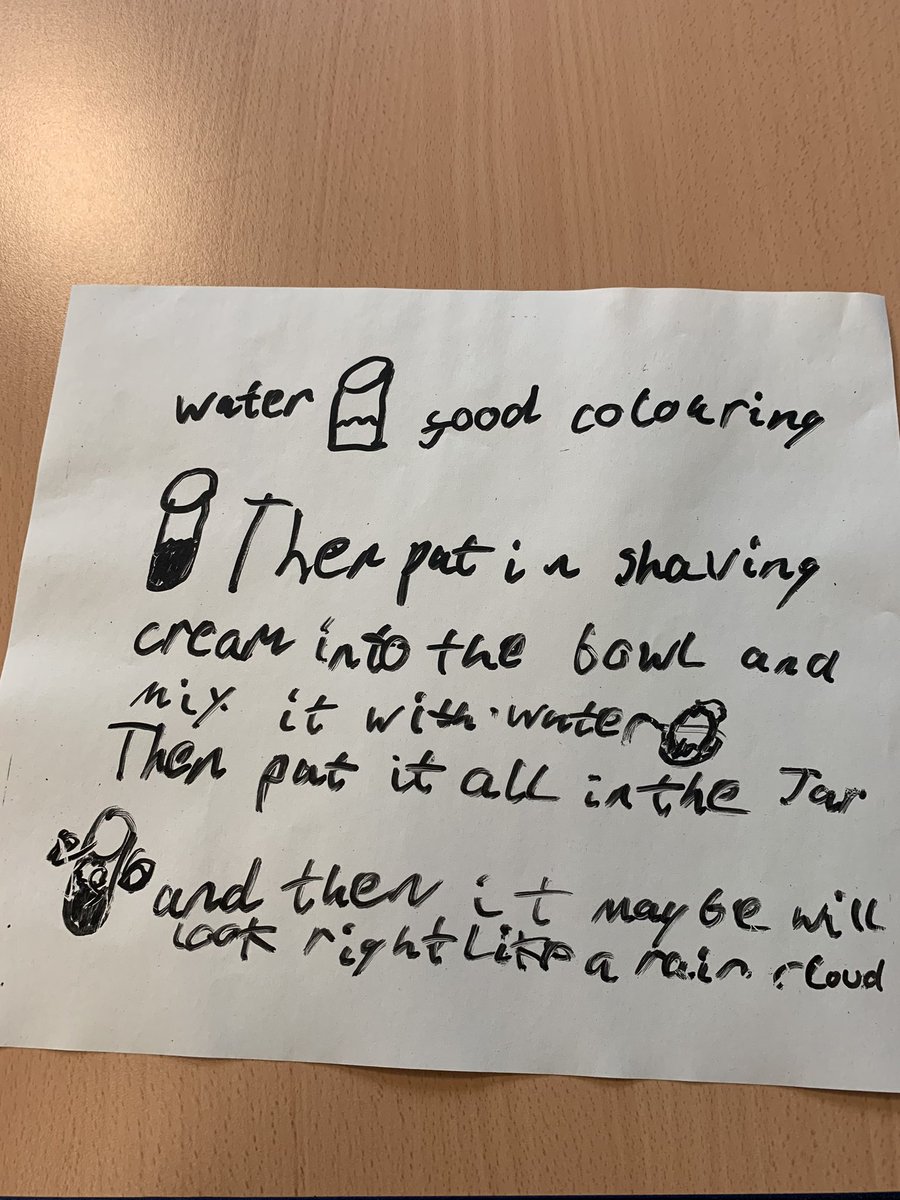 water food colouring
Then put in shaving
cream into the bowl and
mix it with water
Then put it all in the Jar
and then it maybe will
look right like a rain cloud